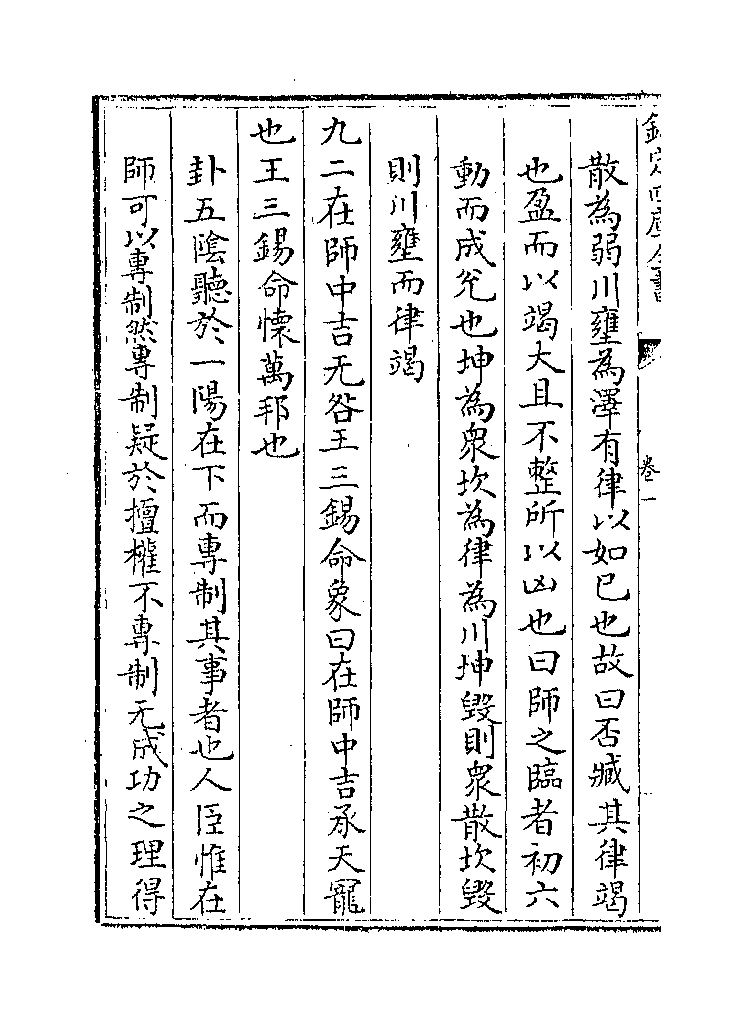 欽定四庫全書
卷一
散為弱川壅為澤有律以如已也故曰否臧其律竭
也盈而以竭夭且不整所以凶也曰師之臨者初六
動而成兊也坤為衆坎為律為川坤毀則衆散坎毀
則川壅而律竭
九二在師中吉无咎王三錫命象曰在師中吉承天寵
也王三錫命懷萬邦也
卦五陰聽於一陽在下而專制其事者也人臣惟在
師可以專制然專制疑於擅權不專制无成功之理得